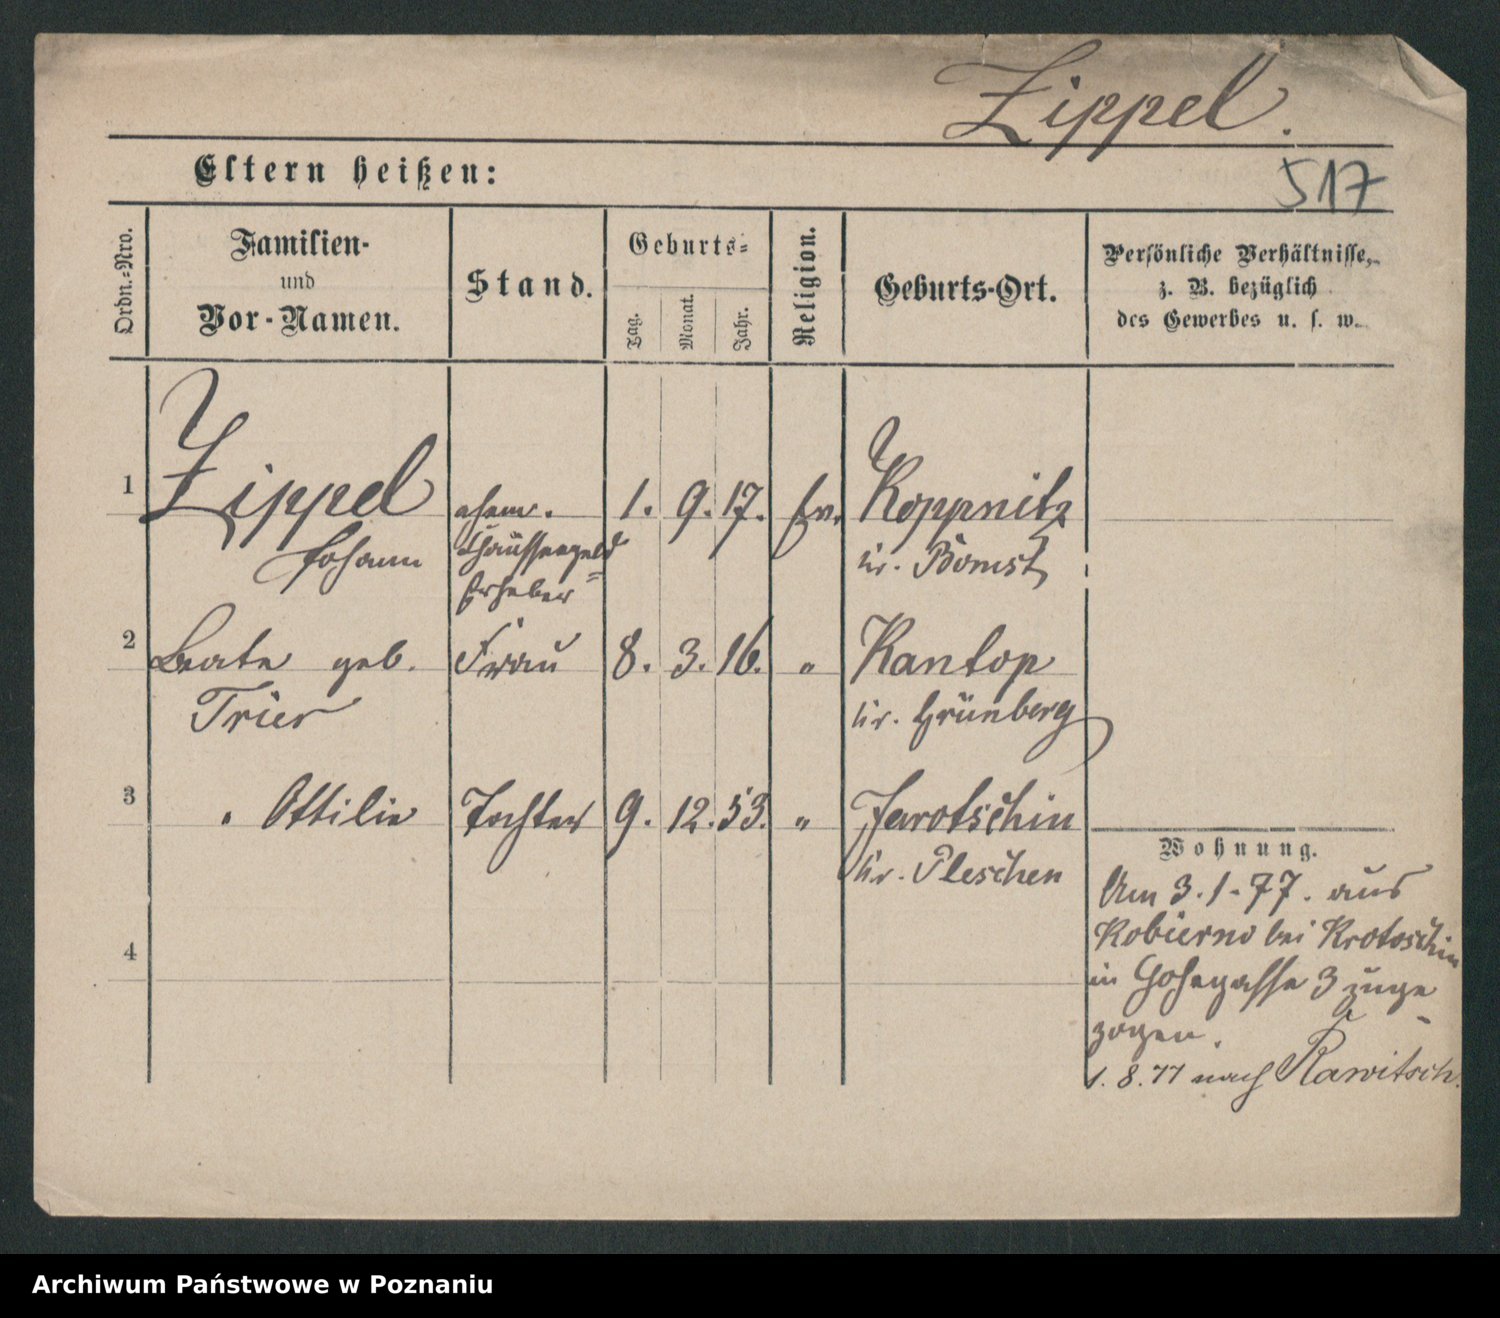 Zippel.
517
Eltern heißen:
Ordn.-Nro.
Familien-
und
Vor-Namen.
Stand.
Geburts-
Tag.
Monat.
Jahr.
Religion.
Geburts-Ort.
Persönliche Verhältnisse,
z. B. bezüglich
des Gewerbes u. s. w.
1 Zippel ehem. 1. 9. 17. Ev. Koppnitz
Johann Chausseegeld= Kr. Bomst
Erheber
2 Beate geb. Frau 8. 3. 16. " Kantop
Trier Kr. Grünberg
3 " Ottilie Tochter 9. 12. 53. " Jarotschin
Kr. Pleschen
4
Wohnung.
Am 3.1.77. aus
Kobierno bei Krotoschin
in Hohegasse 3 zuge-
zogen.
1.8.77 nach Rawitsch.
Archiwum Państwowe w Poznaniu